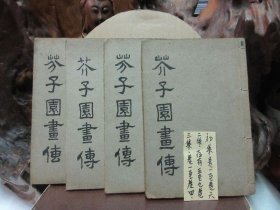 芥子園畫傳
芥子園畫傳
芥子園畫傳
芥子園畫傳
初集卷一至卷六
三集卷一至卷四